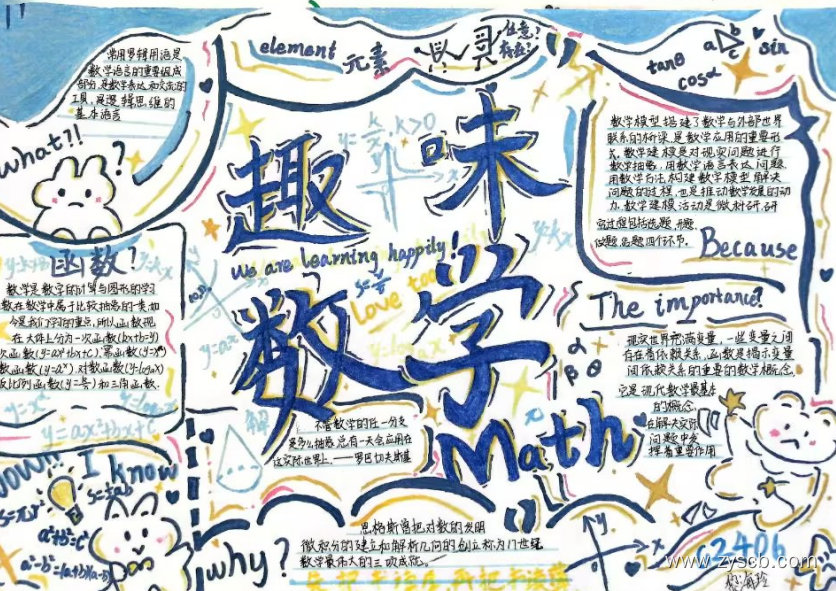 常用逻辑用语是
数学语言的重要组成
部分,是数学表达和交流的
工具,是逻辑思维的
基本语言
What?!
?
element 元素
任意?
存在?
tanθ
cosα
a b c
sin
趣味
数学
y=k/x, k>0
we are learning happily!
Love too
y=kx
y=ax
Math
数学模型搭建了数学与外部世界
联系的桥梁,是数学应用的重要形
式,数学建模是对现实问题进行
数学抽象,用数学语言表达问题
用数学方法构建数学模型解决
问题的过程,也是推动数学发展的动
力.数学建模活动是
Because
函数?
数学是数学的计算与图形的学习
数在数学中属于比较抽象的一类,如
今是我们学习的重点,所以函数现
在大体上分为一次函数(bx+b=y)
次函数(y=ax²+bx+c),幂函数(y=xᵃ)
数函数(y=aˣ)对数函数(y=logax)
反比例函数(y=)和三角函数.
y=x²
y=ax²+bx+c
The importance?
现实世界充满变量,一些变量之间
存在着依赖关系,函数是揭示变量
间依赖关系的重要的数学概念,
它是现代数学最基本
的概念,
在解决实际
问题中发
挥着重要作用
α
β θ
解
π
不管数学的任一分支
是多么抽象,总有一天会应用在
这实际世界上.——罗巴切夫斯基
I know
S=½ab
S=πr²
a²+b²=c²
a²-b²=(a+b)(a-b)
why?
恩格斯曾把对数的发明
微积分的建立和解析几何的创立称为17世纪
数学最伟大的三功成就.
y
x
2406
www.zyscb.com